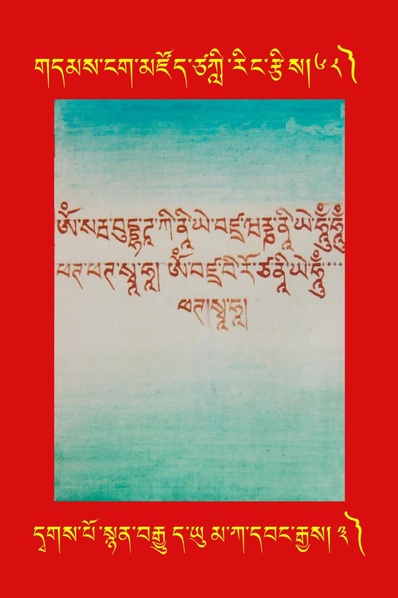 གདམས་ངག་མཛོད་ཙཀླི་རིང་རྩིས།༦༨༽
ཨོཾ་སརྦ་བུདྡྷ་ཌཱ་ཀི་ནཱི་ཡེ་བཛྲ་ཝརྞ་ནཱི་ཡེ་ཧཱུྃ་ཧཱུྃ
ཕཊ་ཕཊ་སྭཱ་ཧཱ། ཨོཾ་བཛྲ་བཻ་རོ་ཙ་ནཱི་ཡེ་ཧཱུྃ་་་
ཕཊ།སྭཱ་ཧཱ།
དྭགས་པོ་སྙན་བརྒྱུད་ཡུམ་ཀ་དབང་རྒྱས། ༣༽